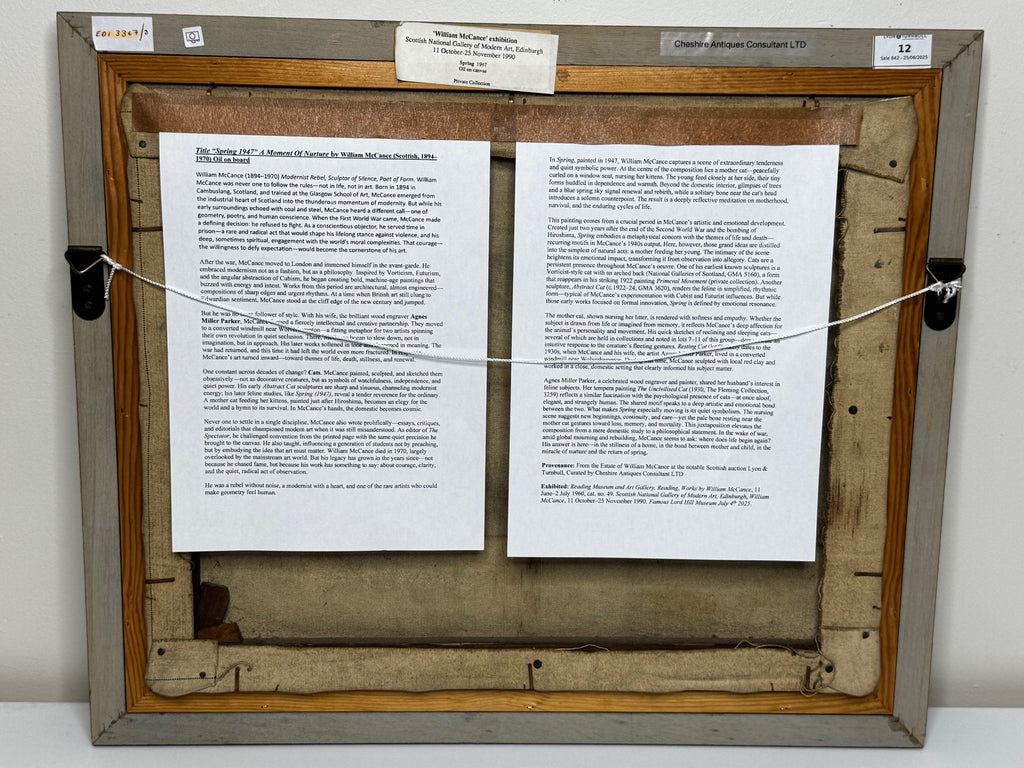 EDI 3367/3
'William McCance' exhibition
Scottish National Gallery of Modern Art, Edinburgh
11 October-25 November 1990
Spring 1947
Oil on canvas
Private Collection
Cheshire Antiques Consultant LTD
12
Sale 842 - 25/06/2025
Title "Spring 1947" A Moment Of Nurture by William McCance (Scottish, 1894–
1970) Oil on board
William McCance (1894–1970) Modernist Rebel, Sculptor of Silence, Poet of Form. William
McCance was never one to follow the rules—not in life, not in art. Born in 1894 in
Cambuslang, Scotland, and trained at the Glasgow School of Art, McCance emerged from
the industrial heart of Scotland into the thunderous momentum of modernity. But while his
early surroundings echoed with coal and steel, McCance heard a different call—one of
geometry, poetry, and human conscience. When the First World War came, McCance made
a defining decision: he refused to fight. As a conscientious objector, he served time in
prison—a rare and radical act that would shape his lifelong stance against violence, and his
deep, sometimes spiritual, engagement with the world's moral complexities. That courage—
the willingness to defy expectation—would become the cornerstone of his art.
After the war, McCance moved to London and immersed himself in the avant-garde. He
embraced modernism not as a fashion, but as a philosophy. Inspired by Vorticism, Futurism,
and the angular abstraction of Cubism, he began creating bold, machine-age paintings that
buzzed with energy and intent. Works from this period are architectural, almost engineered—
compositions of sharp edges and urgent rhythms. At a time when British art still clung to
Edwardian sentiment, McCance stood at the cliff edge of the new century and jumped.
But he was no follower of style. With his wife, the brilliant wood engraver Agnes
Miller Parker, McCance a fiercely intellectual and creative partnership. They moved
to a converted windmill near a fitting metaphor for two artists spinning
their own revolution in quiet seclusion. There, began to slow down, not in
imagination, but in approach. His later works softened in tone in meaning. The
war had returned, and this time it had left the world even more fractured. In
McCance's art turned inward—toward themes of life, death, stillness, and renewal.
One constant across decades of change? Cats. McCance painted, sculpted, and sketched them
obsessively—not as decorative creatures, but as symbols of watchfulness, independence, and
quiet power. His early Abstract Cat sculptures are sharp and sinuous, channeling modernist
energy; his later feline studies, like Spring (1947), reveal a tender reverence for the ordinary.
A mother cat feeding her kittens, painted just after Hiroshima, becomes an elegy for the
world and a hymn to its survival. In McCance's hands, the domestic becomes cosmic.
Never one to settle in a single discipline, McCance also wrote prolifically—essays, critiques,
and editorials that championed modern art when it was still misunderstood. As editor of The
Spectator, he challenged convention from the printed page with the same quiet precision he
brought to the canvas. He also taught, influencing a generation of students not by preaching,
but by embodying the idea that art must matter. William McCance died in 1970, largely
overlooked by the mainstream art world. But his legacy has grown in the years since—not
because he chased fame, but because his work has something to say: about courage, clarity,
and the quiet, radical act of observation.
He was a rebel without noise, a modernist with a heart, and one of the rare artists who could
make geometry feel human.
In Spring, painted in 1947, William McCance captures a scene of extraordinary tenderness
and quiet symbolic power. At the centre of the composition lies a mother cat—peacefully
curled on a window seat, nursing her kittens. The young feed closely at her side, their tiny
forms huddled in dependence and warmth. Beyond the domestic interior, glimpses of trees
and a blue spring sky signal renewal and rebirth, while a solitary bone near the cat's head
introduces a solemn counterpoint. The result is a deeply reflective meditation on motherhood,
survival, and the enduring cycles of life.
This painting comes from a crucial period in McCance's artistic and emotional development.
Created just two years after the end of the Second World War and the bombing of
Hiroshima, Spring embodies a metaphysical concern with the themes of life and death—
recurring motifs in McCance's 1940s output. Here, however, those grand ideas are distilled
into the simplest of natural acts: a mother feeding her young. The intimacy of the scene
heightens its emotional impact, transforming it from observation into allegory. Cats are a
persistent presence throughout McCance's oeuvre. One of his earliest known sculptures is a
Vorticist-style cat with an arched back (National Galleries of Scotland, GMA 5160), a form
that reappears in his striking 1922 painting Primeval Movement (private collection). Another
sculpture, Abstract Cat (c.1922–24, GMA 3620), renders the feline in simplified, rhythmic
form—typical of McCance's experimentation with Cubist and Futurist influences. But while
those early works focused on formal innovation, Spring is defined by emotional resonance.
The mother cat, shown nursing her litter, is rendered with softness and empathy. Whether the
subject is drawn from life or imagined from memory, it reflects McCance's deep affection for
the animal's personality and movement. His quick sketches of reclining and sleeping cats—
several of which are held in collections and noted in lots 7–11 of this group— an
intuitive response to the creature's fleeting gestures. Resting Cat dates to the
1930s, when McCance and his wife, the artist Agnes Parker, lived in a converted
windmill near McCance sculpted with local red clay and
worked in a close, domestic setting that clearly informed his subject matter.
Agnes Miller Parker, a celebrated wood engraver and painter, shared her husband's interest in
feline subjects. Her tempera painting The Uncivilised Cat (1930, The Fleming Collection,
3259) reflects a similar fascination with the psychological presence of cats—at once aloof,
elegant, and strangely human. The shared motif speaks to a deep artistic and emotional bond
between the two. What makes Spring especially moving is its quiet symbolism. The nursing
scene suggests new beginnings, continuity, and care—yet the pale bone resting near the
mother cat gestures toward loss, memory, and mortality. This juxtaposition elevates the
composition from a mere domestic study to a philosophical statement. In the wake of war,
amid global mourning and rebuilding, McCance seems to ask: where does life begin again?
His answer is here—in the stillness of a home, in the bond between mother and child, in the
miracle of nurture and the return of spring.
Provenance: From the Estate of William McCance at the notable Scottish auction Lyon &
Turnbull, Curated by Cheshire Antiques Consultant LTD
Exhibited: Reading Museum and Art Gallery, Reading, Works by William McCance, 11
June–2 July 1960, cat. no. 49. Scottish National Gallery of Modern Art, Edinburgh, William
McCance, 11 October–25 November 1990, Famous Lord Hill Museum July 4th 2025.